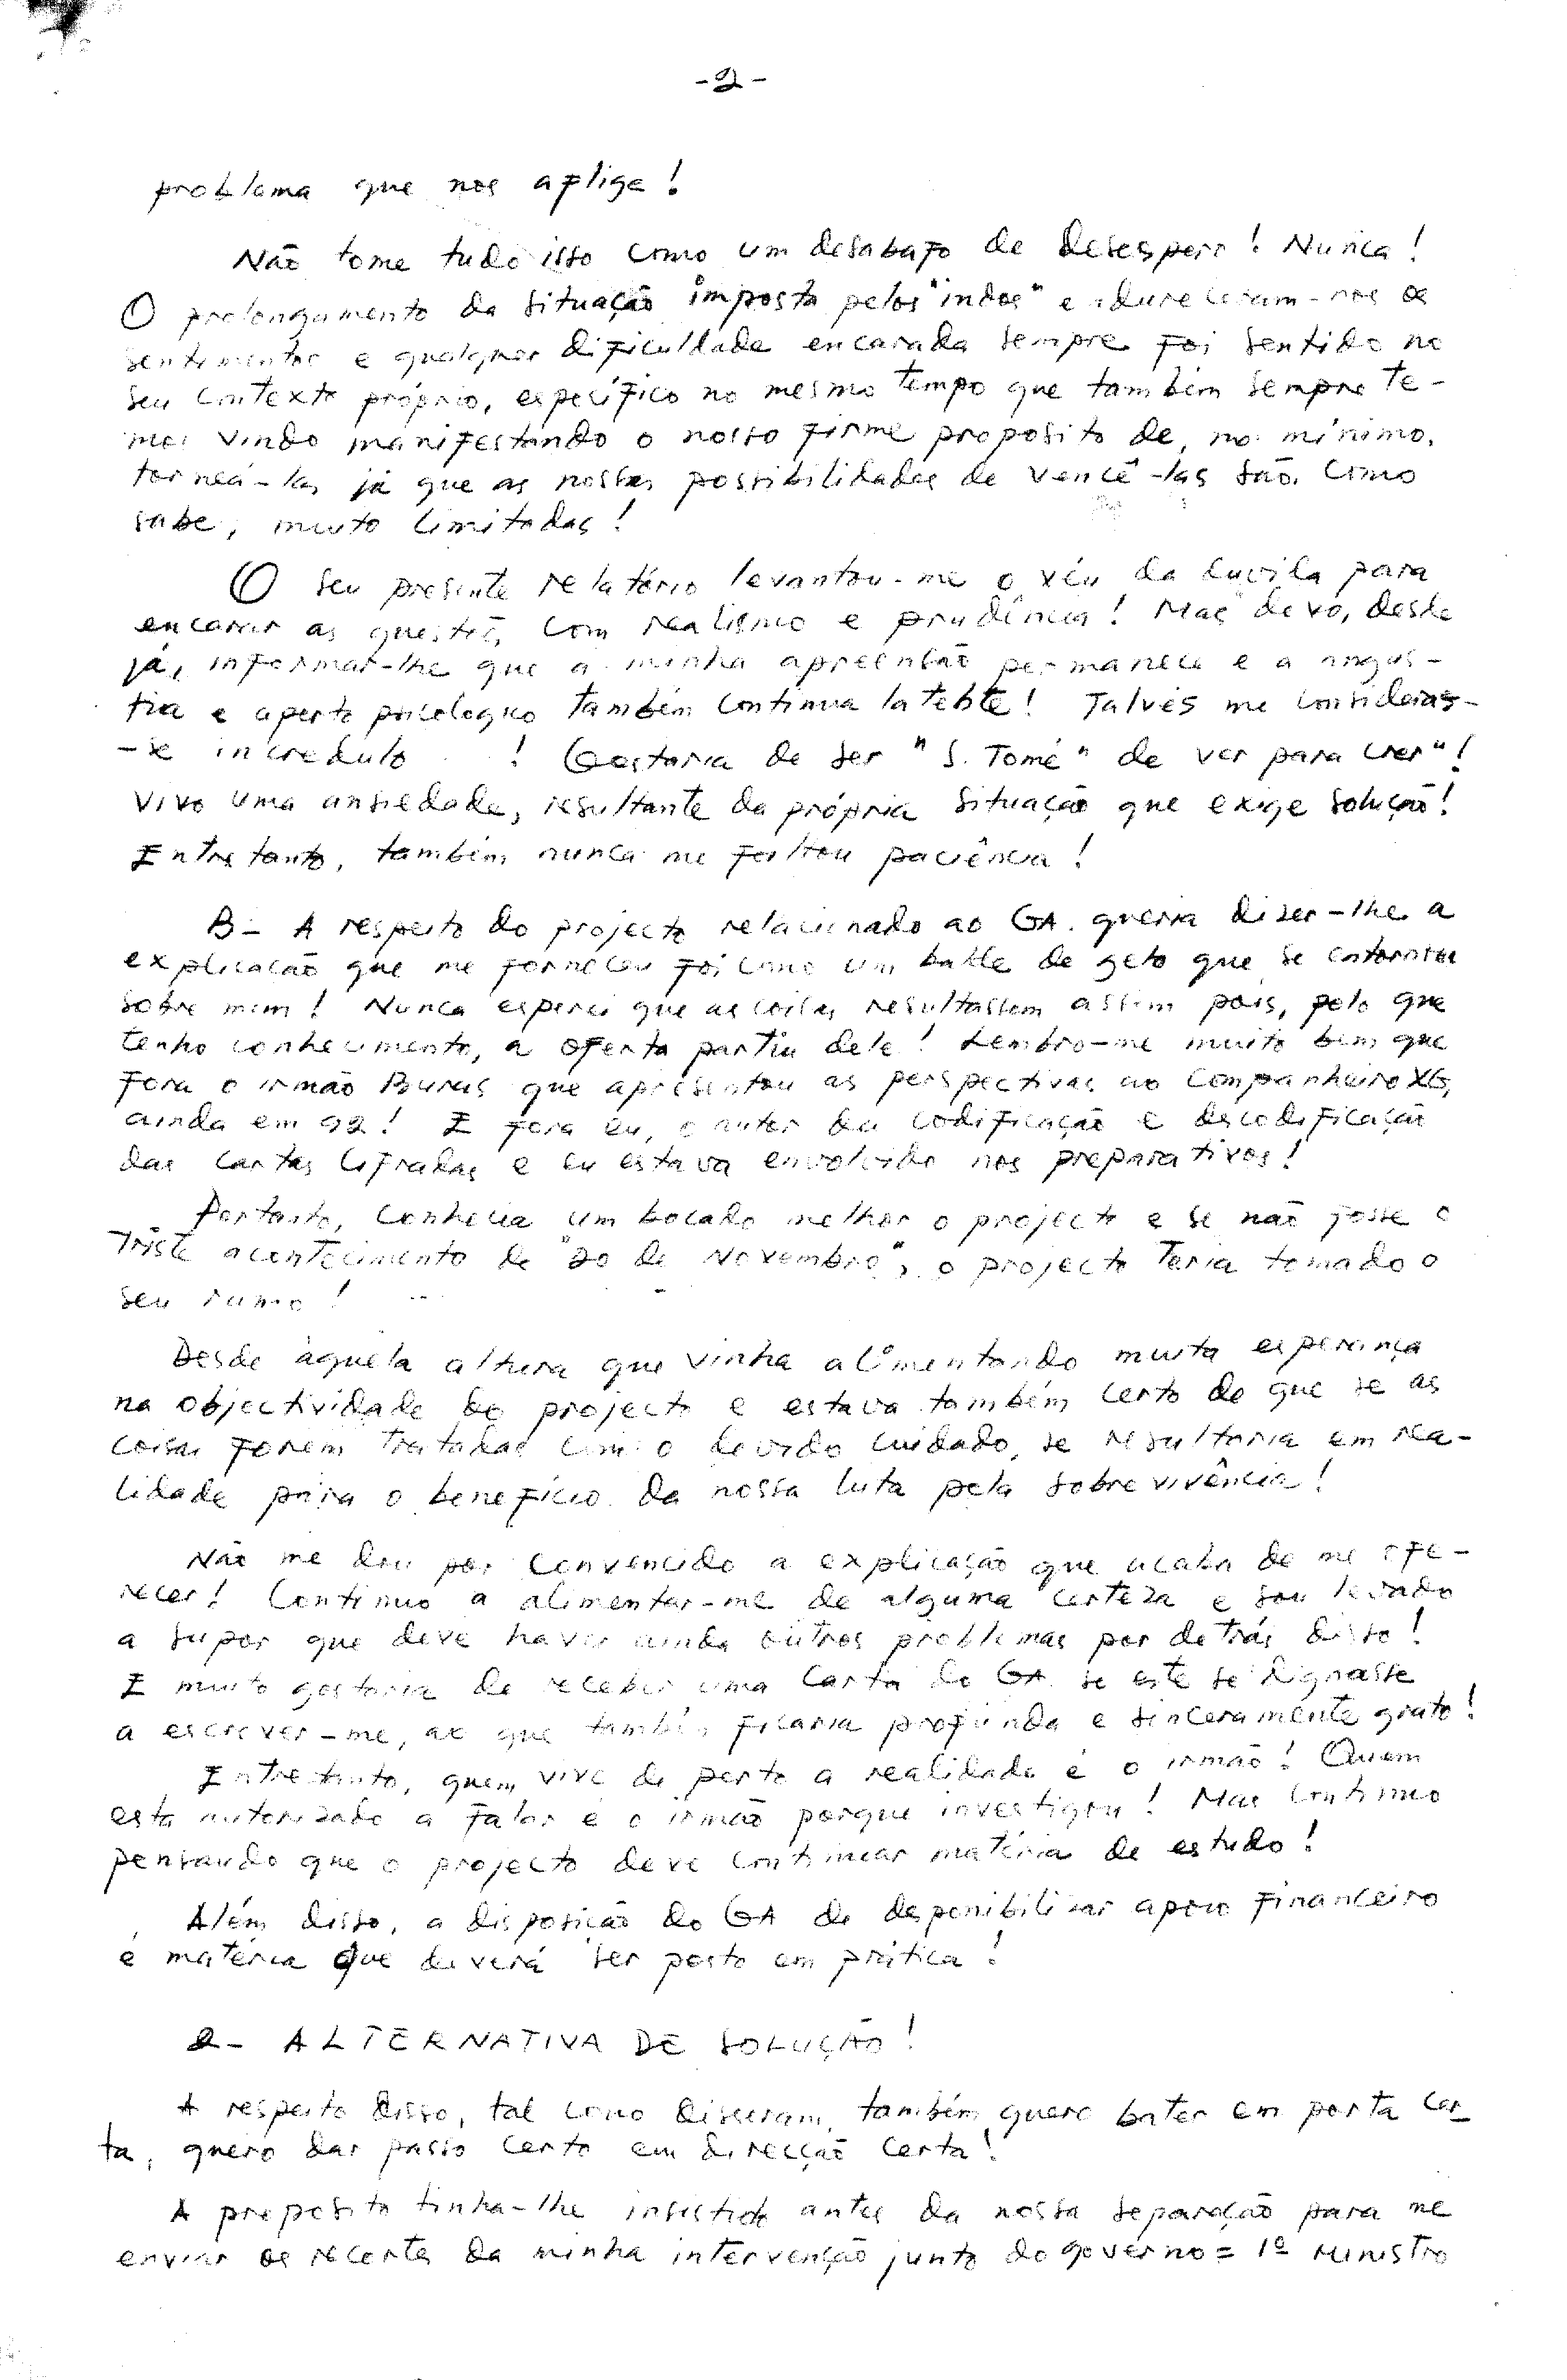 -2-
problema que nos aflige!
Não tome tudo isso como um desabafo de desespero! Nunca!
O prolongamento da situação imposta pelos "indos" endureceram-nos os
sentimentos e qualquer dificuldade encarada sempre foi sentido no
seu contexto próprio, específico no mesmo tempo que também sempre te-
mos vindo manifestando o nosso firme proposito de, no mínimo,
torneá-las já que as nossas possibilidades de vencê-las são, como
sabe, muito limitadas!
O seu presente relatório levantou-me o véu da duvida para
encarar as questões com realismo e prudência! Mas devo, desde
já, informar-lhe que a minha apreensão permanece e a angus-
tia e aperto psicologico também continua latente! Talvés me consideras-
-se incredulo ! Gostaria de ser "S. Tomé" de ver para crer"!
Vivo uma ansiedade, resultante da própria situação que exige solução!
Entretanto, também nunca me faltou paciência!
B- A respeito do projecto relacionado ao GA. queria dizer-lhe a
explicação que me forneceu foi como um balde de gelo que se entornou
sobre mim! Nunca esperei que as coisas resultassem assim pois, pelo que
tenho conhecimento, a oferta partiu dele! Lembro-me muito bem que
fora o irmão Buras que apresentou as perspectivas ao Companheiro XG,
ainda em 92! E fora eu, o autor da codificação e descodificação
das cartas cifradas e eu estava envolvido nos preparativos!
Portanto, conhecia um bocado melhor o projecto e se não fosse o
triste acontecimento de "20 de Novembro", o projecto teria tomado o
seu rumo!
Desde àquela altura que vinha alimentando muita esperança
na objectividade do projecto e estava também certo de que se as
coisas forem tratadas com o devido cuidado, se resultaria em rea-
lidade para o benefício da nossa luta pela sobrevivência!
Não me dou por convencido a explicação que acaba de me ofe-
recer! Continuo a alimentar-me de alguma certeza e sou levado
a supor que deve haver ainda outros problemas por detrás disso!
E muito gostaria de receber uma carta do GA se este se dignasse
a escrever-me, ao que também ficaria profunda e sinceramente grato!
Entretanto, quem vive de perto a realidade é o irmão! Quem
esta autorizado a falar é o irmão porque investigou! Mas continuo
pensando que o projecto deve continuar matéria de estudo!
Além disso, a disposição do GA de desponibilizar apoio financeiro
é matéria que deverá ser posto em prática!
2- ALTERNATIVA DE SOLUÇÃO!
A respeito disso, tal como disseram, também quero bater em porta cer-
ta, quero dar passo certo em direcção certa!
A proposito tinha-lhe insistido antes da nossa separação para me
enviar os recortes da minha intervenção junto do governo = 1º Ministro